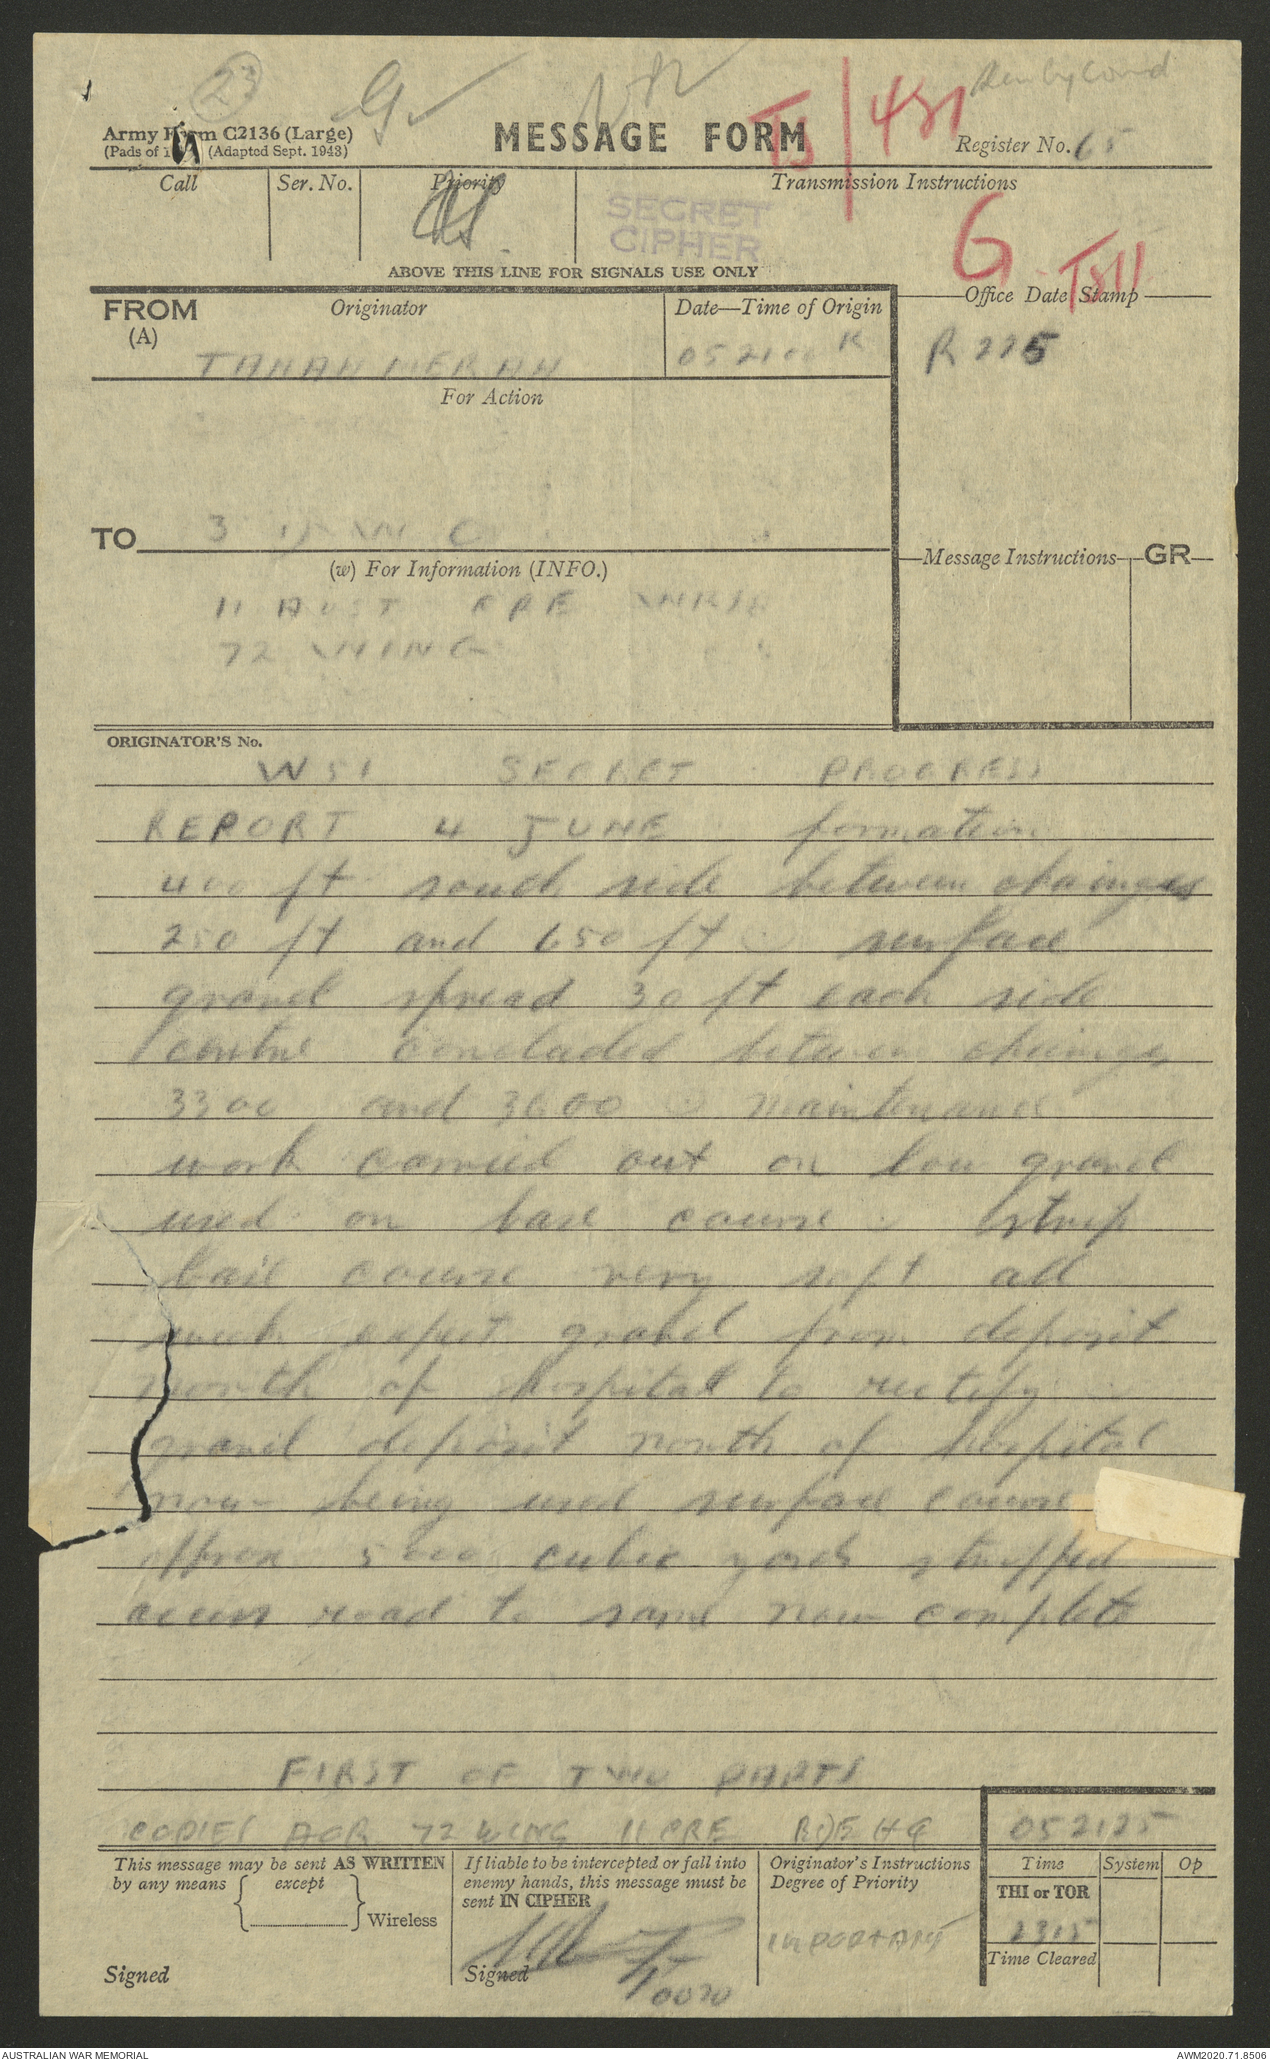 23
Army Form C2136 (Large)
(Pads of (Adapted Sept. 1943)
MESSAGE FORM
TS/481
Register No. 65
Call
Ser. No.
Priority
Transmission Instructions
SECRET
CIPHER
G
ABOVE THIS LINE FOR SIGNALS USE ONLY
FROM
(A)
Originator
TANAH MERAH
Date—Time of Origin
052100 K
Office Date Stamp
R 225
For Action
TO
(w) For Information (INFO.)
11 AUST CRE
72 WING
Message Instructions
GR
ORIGINATOR'S No.
W51 SECRET PROGRESS
REPORT 4 JUNE . formation
400 ft south side between chainages
250 ft and 650 ft . surface
gravel spread 30 ft each side
centre concluded between chainages
3300 and 3600 . maintenance
work carried out on low gravel
used on base course . strip
base course very soft all
expect gravel from deposit
north of hospital to rectify .
gravel deposit north of hospital
now being used surface course
approx 5000 cubic yards stripped
access road to same now complete
FIRST OF TWO PARTS
COPIES AOR 72 WING 11 CRE BDE HQ
052125
This message may be sent AS WRITTEN
by any means { except } Wireless
Signed
If liable to be intercepted or fall into
enemy hands, this message must be
sent IN CIPHER
Signed
0020
Originator's Instructions
Degree of Priority
IMPORTANT
Time
System
Op
THI or TOR
2315
Time Cleared
AUSTRALIAN WAR MEMORIAL
AWM2020.71.8506